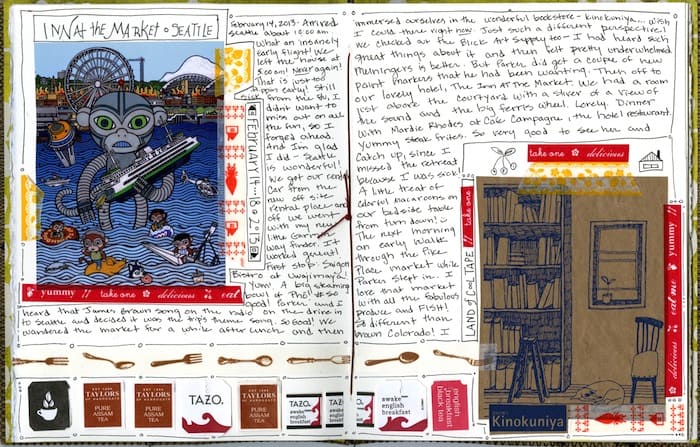 INN AT the MARKET • SEATTLE
February 14, 2013. Arrived
Seattle about 10:00 am.
What an insanely
early flight! We
left the house at
5:00 am! Never again!
That is just too
damn early! Still
sick from the flu, I
didn't want to
miss out on all
the fun, so I
forged ahead.
And I'm glad
I did - Seattle
is wonderful!
We got our rental
car from the
new off site
rental place and
off we went
with my new
little Garmin
way finder. It
worked great!
First stop - Saigon
Bistro at Uwajimaya.
Yum! A big steaming
bowl of Pho! So
good! Parker and I
heard that James Brown song on the radio on the drive in
to Seattle and decided it was the trip's theme song. So Good! We
wandered the market for a while after lunch and then
FEBRUARY 14... 18 • 2013
yummy !! take one delicious eat
immersed ourselves in the wonderful bookstore - Kinokuniya... wish
I could there right now. Just such a different perspective!
We checked out the Blick Art Supply too - I had heard such
great things about it and then felt pretty underwhelmed.
Meiningers is better. But Parker did get a couple of new
paint markers that he had been wanting. Then off to
our lovely hotel, The Inn At The Market. We had a room
just above the courtyard with a sliver of a view of
the sound and the big ferris wheel. Lovely. Dinner
with Mardie Rhodes at Café Campagne, the hotel restaurant.
Yummy steak frites. So very good to see her and
catch up, since I
missed the retreat
because I was sick!
A little treat of
colorful macaroons on
our bedside table
from turn down!
The next morning
an early walk
through the Pike
Place Market while
Parker slept in. I
love that market
with all the fabulous
produce and FISH!
So different than
brown Colorado! I
take one delicious
take one
LAND of COOL TAPE
yummy !! eat me delicious
Kinokuniya
TAYLORS
OF HARROGATE
PURE
ASSAM
TEA
TAYLORS
OF HARROGATE
PURE
ASSAM
TEA
TAZO.
TAYLORS
OF HARROGATE
PURE
ASSAM
TEA
TAZO.
awake
english
breakfast
TAZO.
awake
english
breakfast
english
breakfast
black tea